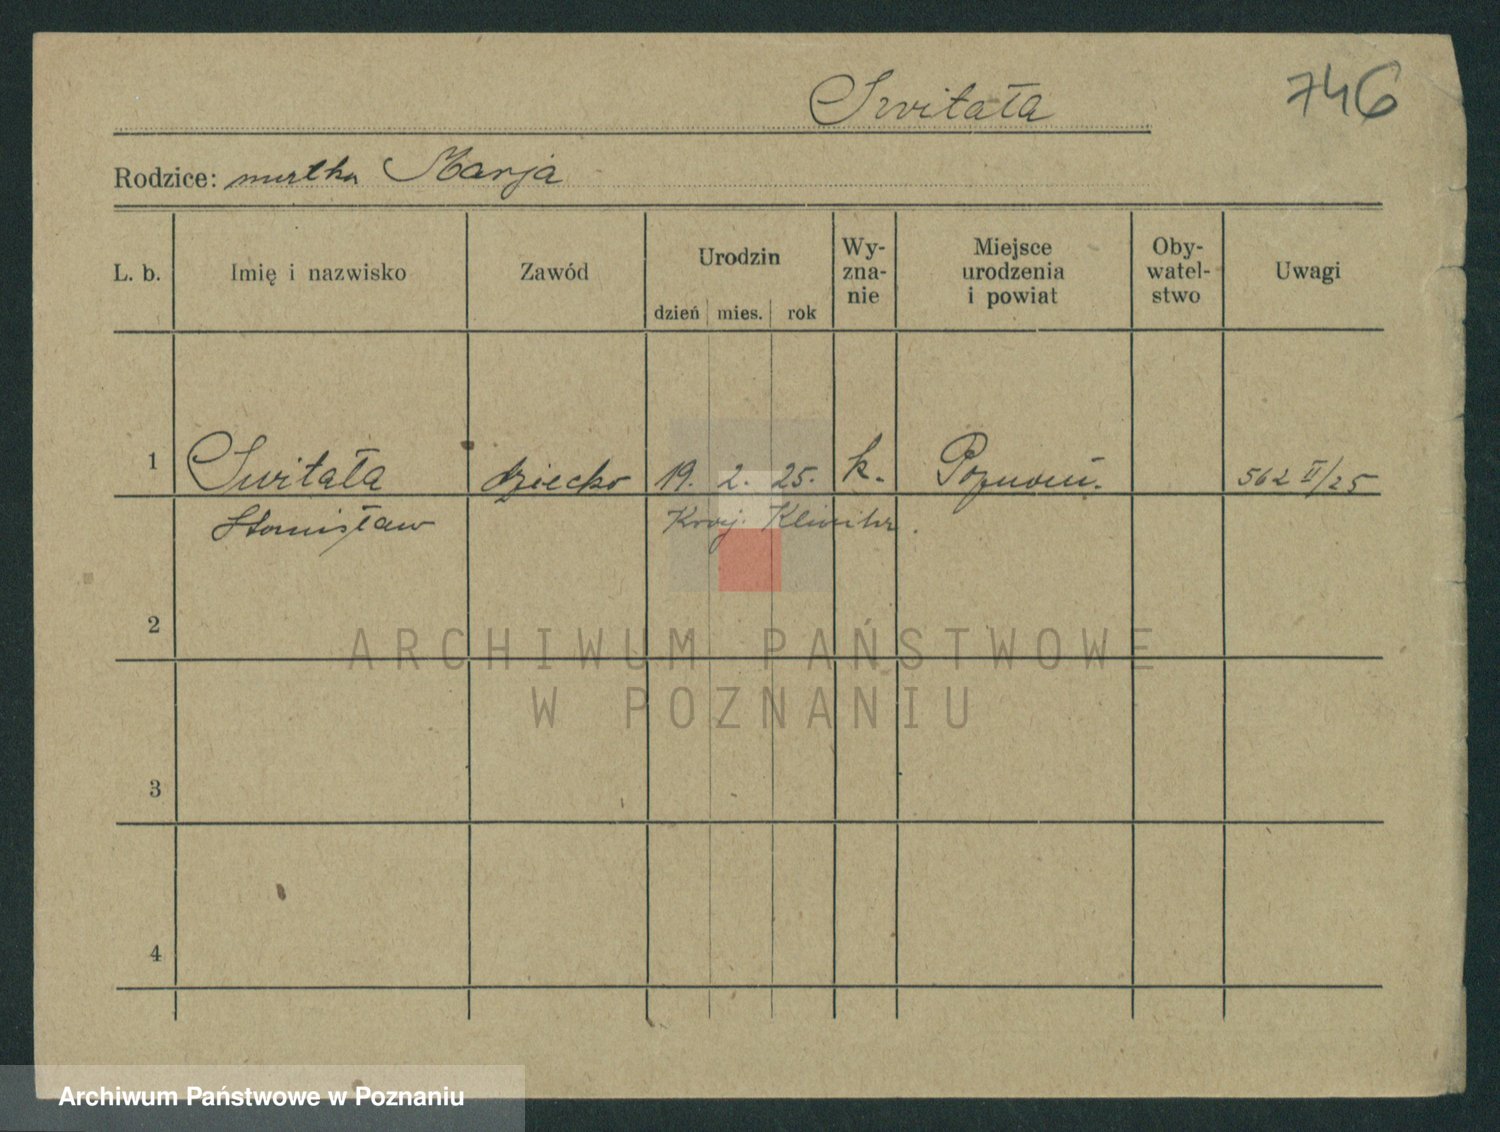 746
Switała
Rodzice: matka Marja
L. b. Imię i nazwisko Zawód Urodzin dzień mies. rok Wy-zna-nie Miejsce urodzenia i powiat Oby-watel-stwo Uwagi
1 Switała dziecko 19. 2. 25. k. Poznań. 562 II/25
Stanisław Kraj.
2
ARCHIWUM PAŃSTWOWE
W POZNANIU
3
4
Archiwum Państwowe w Poznaniu